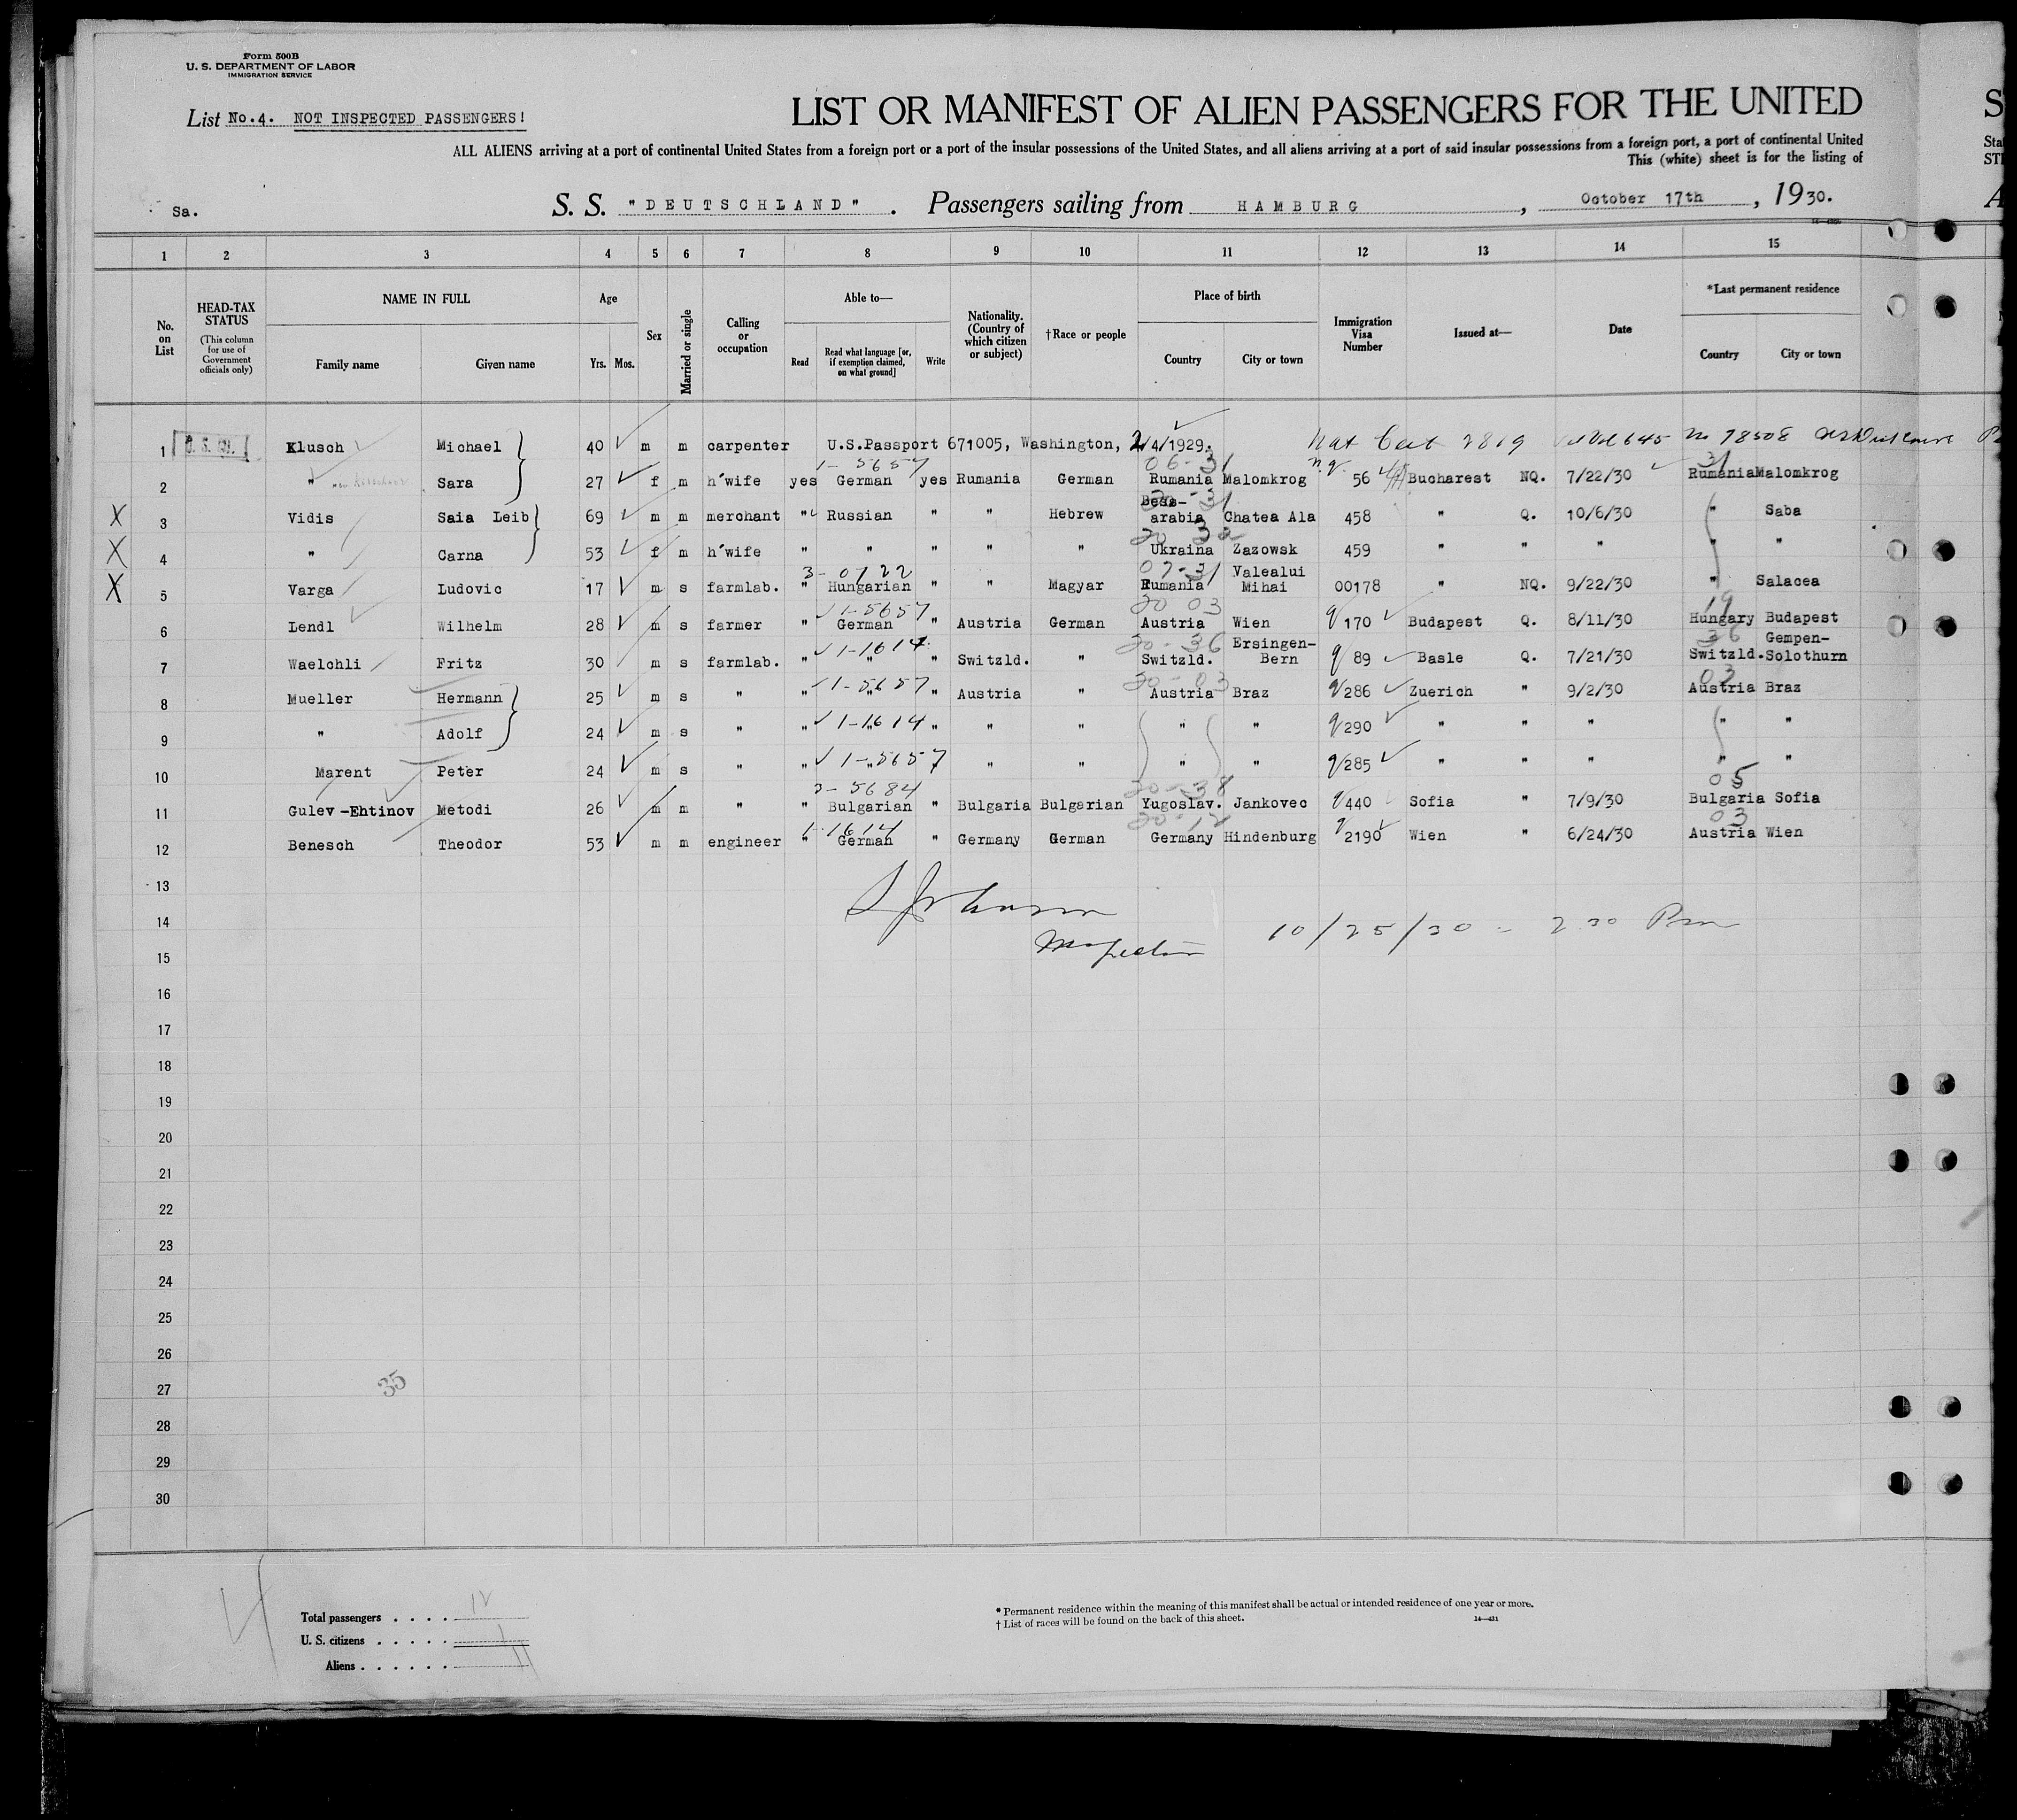 Form 500B
U. S. DEPARTMENT OF LABOR
IMMIGRATION SERVICE
List No.4. NOT INSPECTED PASSENGERS!
LIST OR MANIFEST OF ALIEN PASSENGERS FOR THE UNITED
ALL ALIENS arriving at a port of continental United States from a foreign port or a port of the insular possessions of the United States, and all aliens arriving at a port of said insular possessions from a foreign port, a port of continental United
This (white) sheet is for the listing of
Sa. S. S. "DEUTSCHLAND". Passengers sailing from HAMBURG, October 17th, 1930.
1 2 3 4 5 6 7 8 9 10 11 12 13 14 15
No. on List
HEAD-TAX STATUS (This column for use of Government officials only)
NAME IN FULL Family name Given name
Age Yrs. Mos.
Sex
Married or single
Calling or occupation
Able to— Read Read what language [or, if exemption claimed, on what ground] Write
Nationality. (Country of which citizen or subject)
†Race or people
Place of birth Country City or town
Immigration Visa Number
Issued at—
Date
*Last permanent residence Country City or town
1 U. S. C. Klusch Michael 40 m m carpenter U.S.Passport 671005, Washington, 2/4/1929. Nat Cert 2819 Vol 645 No 78508
06-31 n.q. 31
1-5657
2 " Sara 27 f m h'wife yes German yes Rumania German Rumania Malomkrog 56 Bucharest NQ. 7/22/30 Rumania Malomkrog
20-31
X 3 Vidis Saia Leib 69 m m merchant " Russian " " Hebrew Bess-arabia Chatea Ala 458 " Q. 10/6/30 " Saba
20 32
X 4 " Carna 53 f m h'wife " " " " " Ukraina Zazowsk 459 " " " " "
3-0722 07-31
X 5 Varga Ludovic 17 m s farmlab. " Hungarian " " Magyar Rumania Valealui Mihai 00178 " NQ. 9/22/30 " Salacea
1-5657 20 03 19
6 Lendl Wilhelm 28 m s farmer " German " Austria German Austria Wien q 170 Budapest Q. 8/11/30 Hungary Budapest
1-1614 20-36 36
7 Waelchli Fritz 30 m s farmlab. " " " Switzld. " Switzld. Ersingen-Bern q 89 Basle Q. 7/21/30 Switzld. Gempen-Solothurn
1-5657 20-03 03
8 Mueller Hermann 25 m s " " " " Austria " Austria Braz q 286 Zuerich " 9/2/30 Austria Braz
1-1614
9 " Adolf 24 m s " " " " " " " " q 290 " " " " "
1-5657
10 Marent Peter 24 m s " " " " " " " " q 285 " " " " "
2-5684 20-38 05
11 Gulev-Ehtinov Metodi 26 m m " " Bulgarian " Bulgaria Bulgarian Yugoslav. Jankovec q 440 Sofia " 7/9/30 Bulgaria Sofia
1-1614 20-12 03
12 Benesch Theodor 53 m m engineer " German " Germany German Germany Hindenburg q 2190 Wien " 6/24/30 Austria Wien
13
14
Inspector 10/25/30 - 2 30 Pm
15
16
17
18
19
20
21
22
23
24
25
26
27
35
28
29
30
Total passengers . . . . 12
U. S. citizens . . . . . 1
Aliens . . . . . . 11
* Permanent residence within the meaning of this manifest shall be actual or intended residence of one year or more.
† List of races will be found on the back of this sheet. 14—431